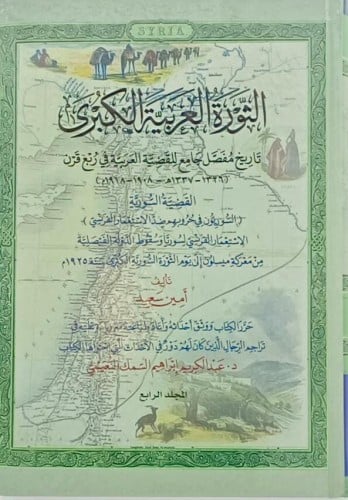 SYRIA
الثورة العربية الكبرى
تاريخ مفصل جامع للقضية العربية في ربع قرن
(١٣٢٦-١٣٣٧هـ - ١٩٠٨-١٩١٨م)
القضية السورية
(السوريون في حروبهم ضد الاستعمار الفرنسي)
الاستعمار الفرنسي لسوريا وسقوط الدولة الفيصلية
من معركة ميسلون إلى يوم الثورة السورية الكبرى سنة ١٩٢٥م
تأليف
أمين سعيد
حرر الكتاب ووثق أحداثه وأعاد
تراجم الرجال الذين كان لهم دور في الأحداث التي الكتاب
د. عبد الكريم إبراهيم السمك
المجلد الرابع